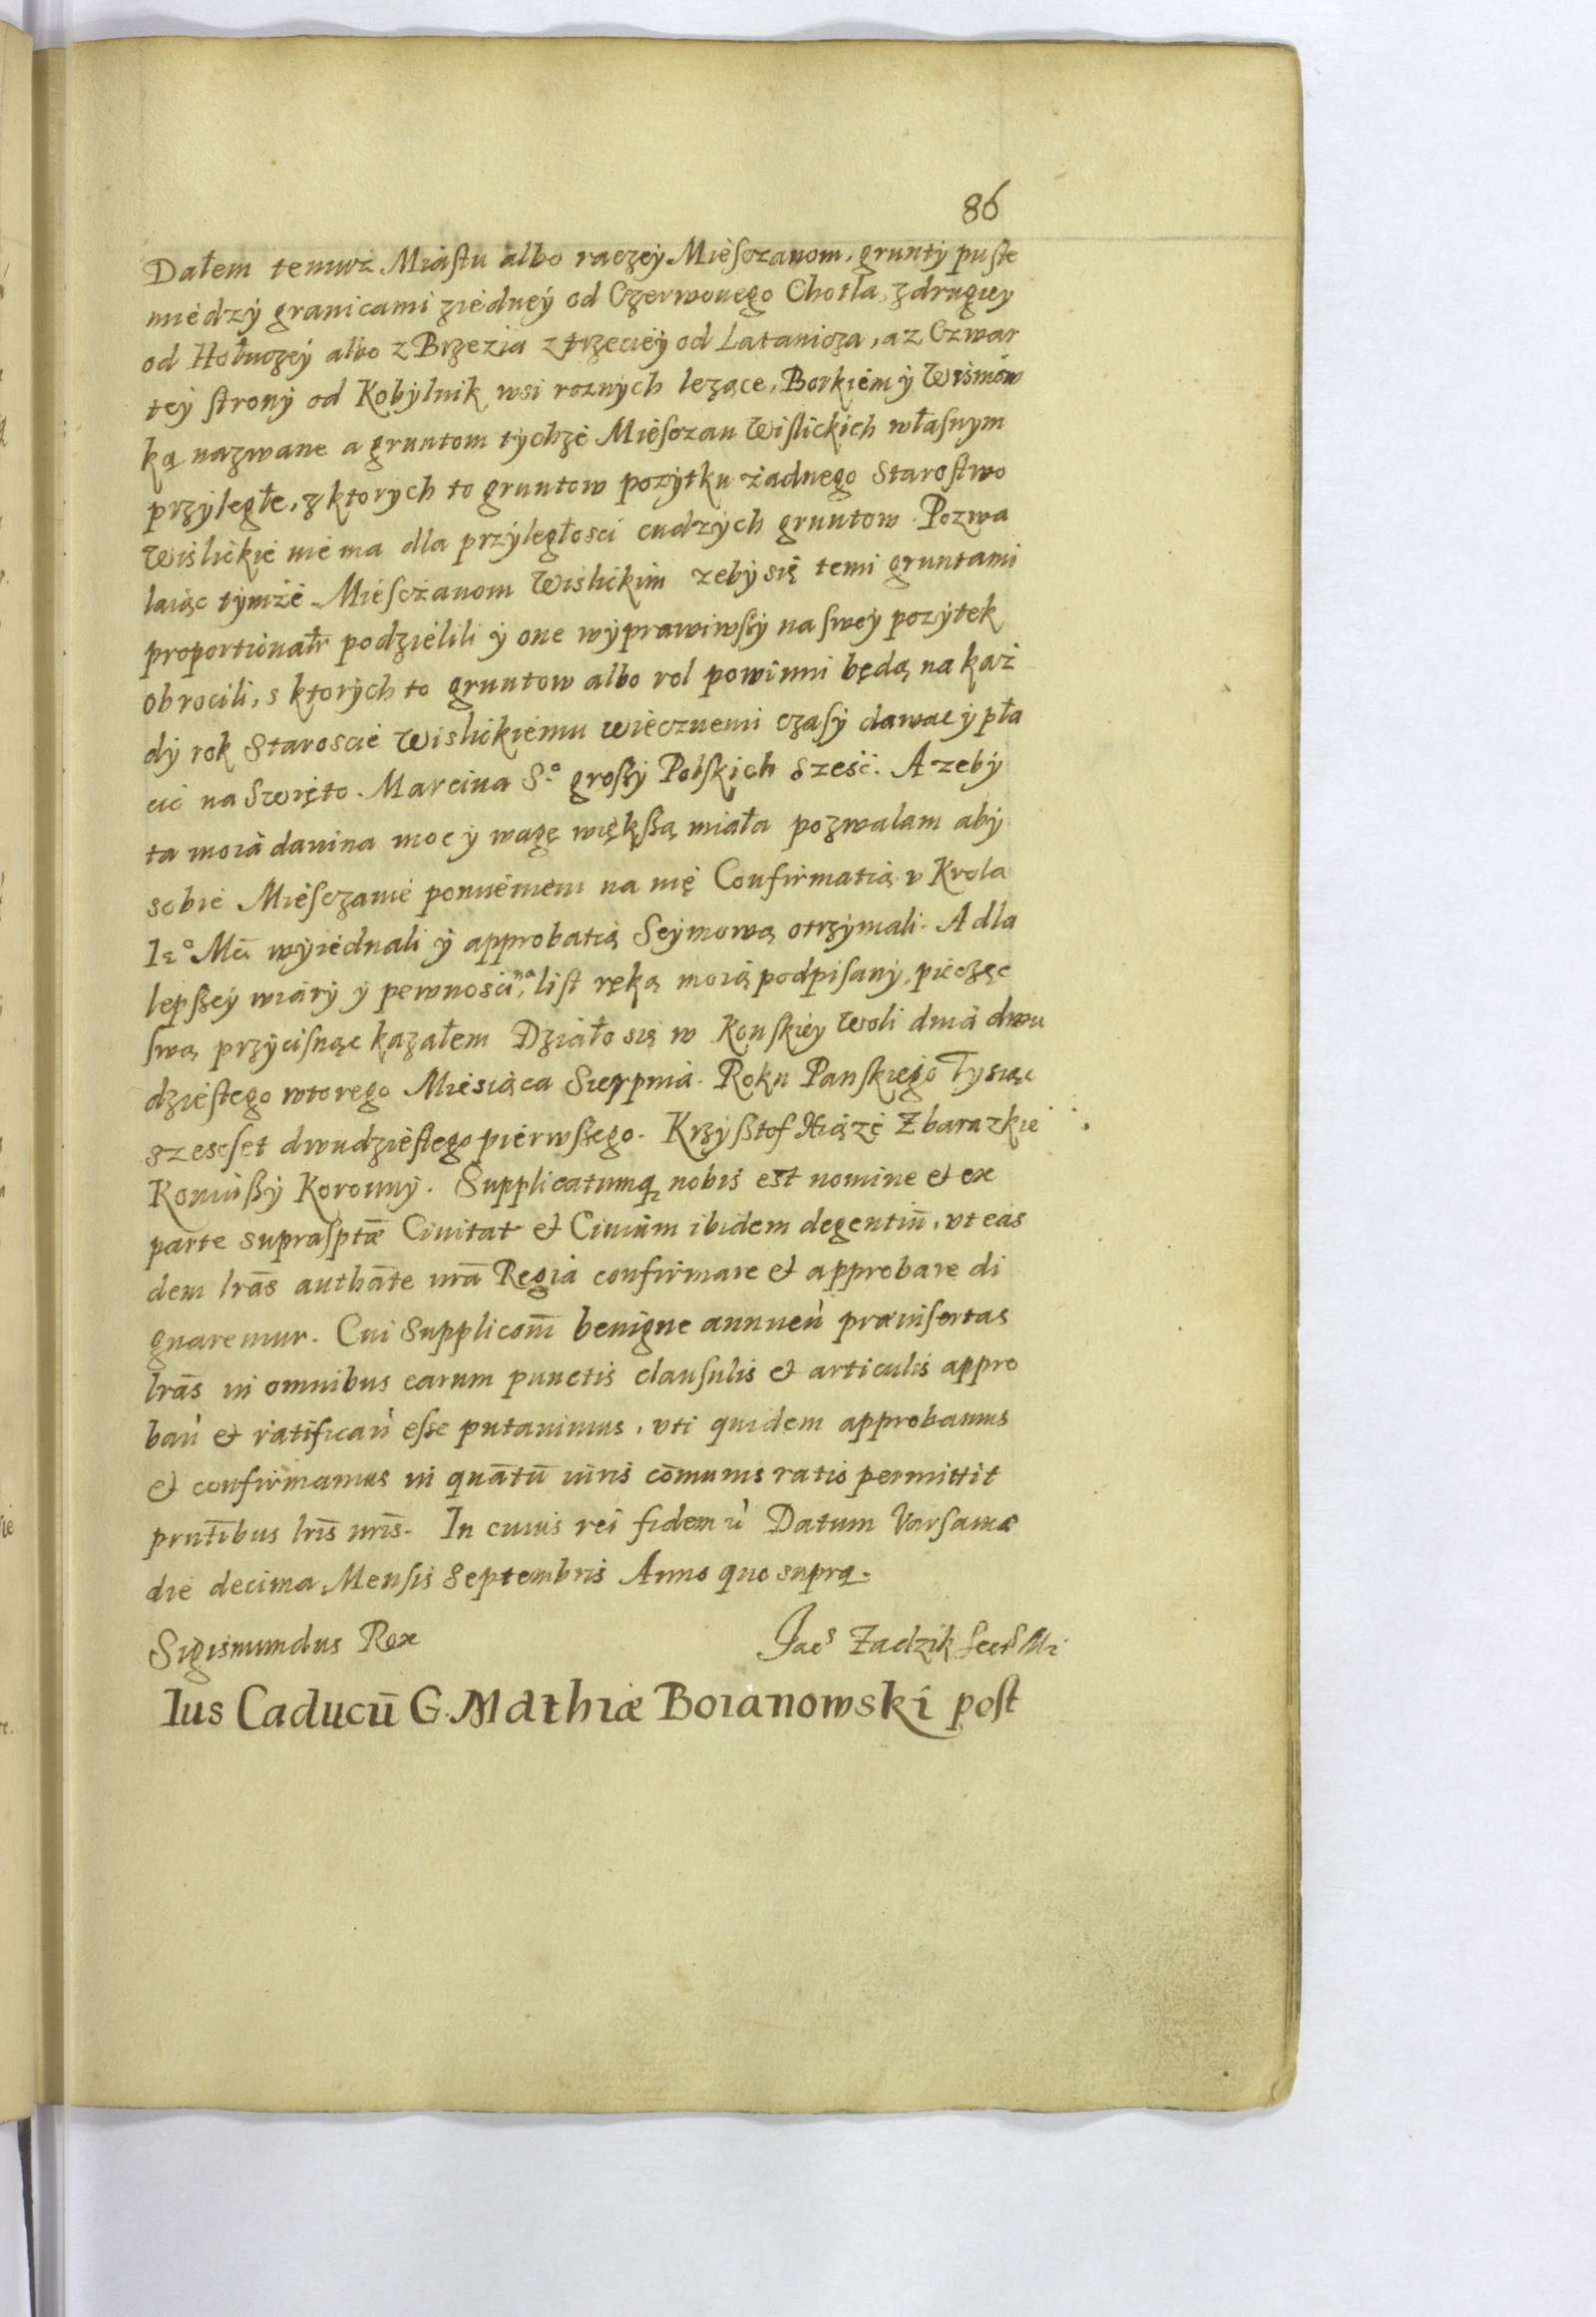 86
Dałem temuż Miástu álbo raczeÿ Miesczanom, gruntÿ puste
miedzÿ granicami ziedneÿ od Czerwonego Chotla, z drugiey
od Hołuczeÿ albo z Brzezia z trzecieÿ od Latanicza, a z Czwar
teÿ stronÿ od Kobÿlnik wsi roznÿch lezące, Borkiem ÿ Wismow
ką nazwane a gruntom tÿchże Miesczan Wislickich własnym
przÿległe, z ktorÿch to gruntow pozÿtku żadnego Starostwo
Wislickie niema dla przÿległosci cudzÿch gruntow. Pozwa
laiąc tÿmże Miesczanom Wislickim zebÿ się temi gruntami
proportionatr podzielili ÿ one wÿprawiwszÿ na sweÿ pozÿtek
obrocili, s ktorÿch to gruntow albo rol powinni będą na każ
dÿ rok Staroscie Wislickiemu wiecznemi czasÿ dawac ÿ pła
cic na Swięto Marcina S.o groszÿ Polskich szesc. A zebÿ
ta moiá danina moc ÿ wagę większą miała pozwalam abÿ
sobie Miesczanie ponniemem na nię Confirmatią v Krola
Ie.o Mci wÿiednali ÿ approbatią Seÿmową otrzÿmali. A dla
lepszeÿ wiárÿ ÿ pewnosci, na list ręką moią podpisanÿ, pieczęc
swą przÿcisnąc kazałem Działo się w Konskieÿ Woli dniá dwu
dziestego wtorego Miesiąca Sierpniá. Roku Panskiego Tysiąc
szescset dwudziestego pierwszego. Krzÿsztof Xiążę Zbarazkie
Koniuszÿ Koronnÿ. Supplicatumq nobis est nomine et ex
parte suprasptæ Ciuitat et Ciuium ibidem degentiū, vt eas
dem lrās authāte nrā Regia confirmare et approbare di
gnaremur. Cui Suppliconi benigne annueñ præinsertas
lrās in omnibus earum punctis clausulis et articulis appro
bañ et ratificañ esse putauimus, vti quidem approbamus
et confirmamus in quātū iuris cōmunis ratio permittit
prntibus lris nris. In cuius rei fidem ñ Datum Varsauiæ
die decima Mensis Septembris Anno quo supra.
Sigismundus Rex
Jacs Zadzik Secrs Mr
Ius Caducū G. Mathiæ Boianowski post